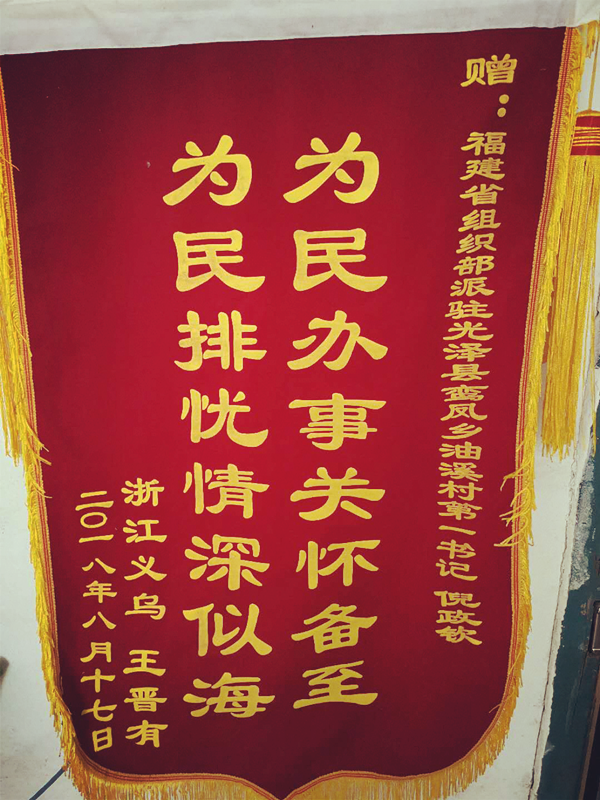 赠：福建省组织部派驻光泽县鸾凤乡油溪村第一书记 倪政钦
为民办事关怀备至
为民排忧情深似海
浙江义乌 王晋有
二〇一八年八月十七日